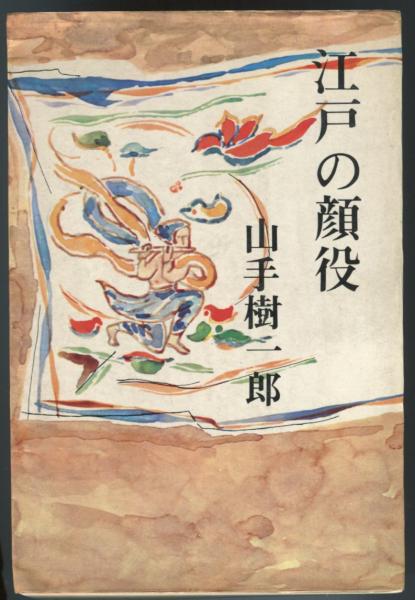 江戸の顔役
山手樹一郎